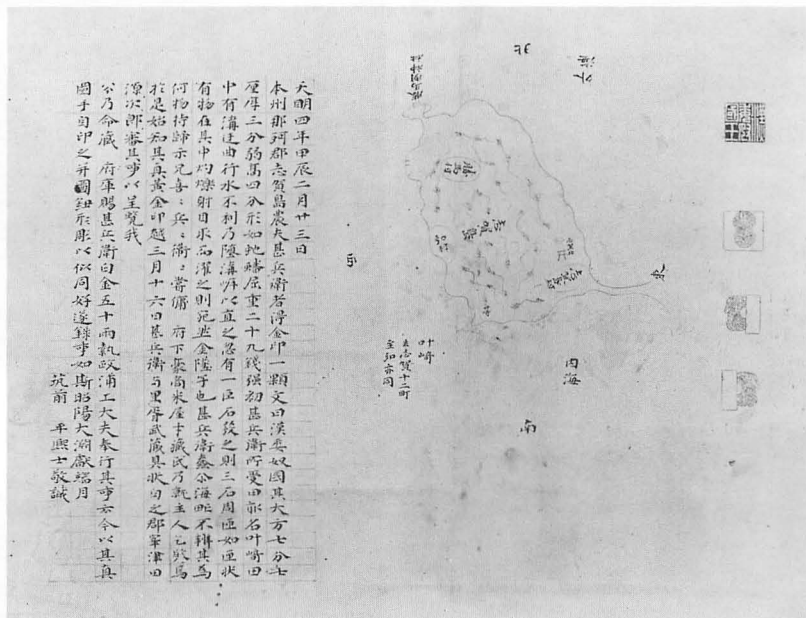 北
外海
東
西
勝馬村
志賀島
叶崎
去志賀十二町
至弘亦同
内海
南
天明四年甲辰二月廿三日
本州那珂郡志賀島農夫甚兵衛者淂金印一顆文曰漢委奴國其大方七分七
厘厚三分弱高四分形如虵蟠屈重二十九錢强初甚兵衛所受田名叶﨑田
中有溝迂曲行水不利乃溝以直之忽有一匝石之則三石周匝如匣狀
有物在其中灼爍射目取而濯之則宛然金墜子也甚兵衛蠢尒海甿不辨其為
何物持歸示兄喜〻兵〻衛〻嘗傭 府下豪商米屋才藏氏乃就主人乞焉
於是始知其真黄金印越三月十六日甚兵衛与里胥武藏具狀白之郡宰津田
源次郎審其事以呈覧我
公乃命藏 府庫賜甚兵衛白金五十兩執政浦工大夫奉行其事云今以其真
圖手自印之并圖鈕形彫以似同好遂録事如斯昭陽大淵獻月
筑前 平煕士敬誠